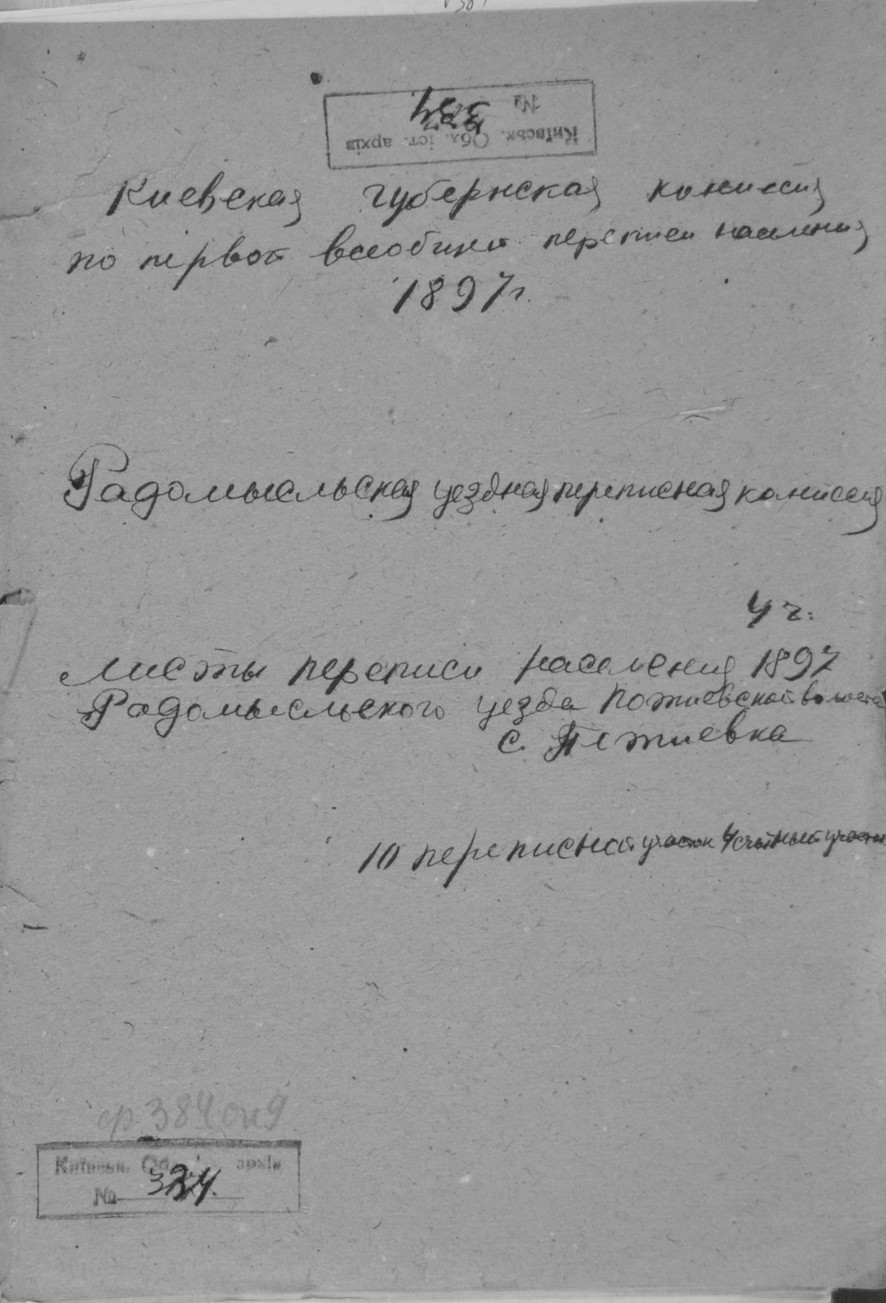 Київськ. Обл. іст. архів
№ 334
Киевская губернская комиссия
по первой всеобщей переписи населения
1897 г.
Радомысльская уездная переписная комиссия
4 ч.
Листы переписи населения 1897
Радомысльского уезда волости
с.
10 переписной участок 4 счетный участок
ф. 384 оп 9
Київськ. Об архів
№ 334.